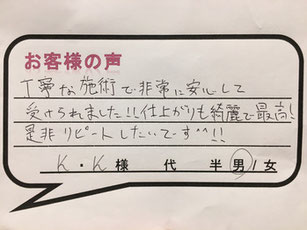 お客様の声
丁寧な施術で非常に安心して
受けられました!!仕上がりも綺麗で最高!
是非リピートしたいです^^!!
K・K様 代 半 男/女